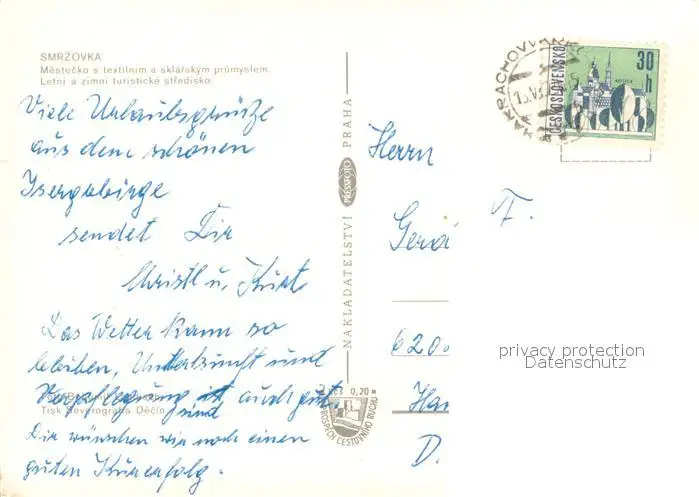 SMRŽOVKA
Městečko s textilním a sklářským průmyslem.
Letní a zimní turistické středisko.
Viele Urlaubsgrüße
aus dem schönen
Isergebirge
sendet Dir
Christl u. Kurt
Das Wetter kann so
bleiben, Unterkunft und
Verpflegung ist auch gut.
sind
Dir wünschen wir noch einen
guten Kurerfolg.
Tisk Severografia Děčín
Kčs 0,20
PROSPĚCH CESTOVNÍHO RUCHU
NAKLADATELSTVÍ PRESSFOTO PRAHA
HARRACHOV
ČESKOSLOVENSKO
30
h
KOŠICE
Herrn
F.
620
Ha
D.
privacy protection
Datenschutz